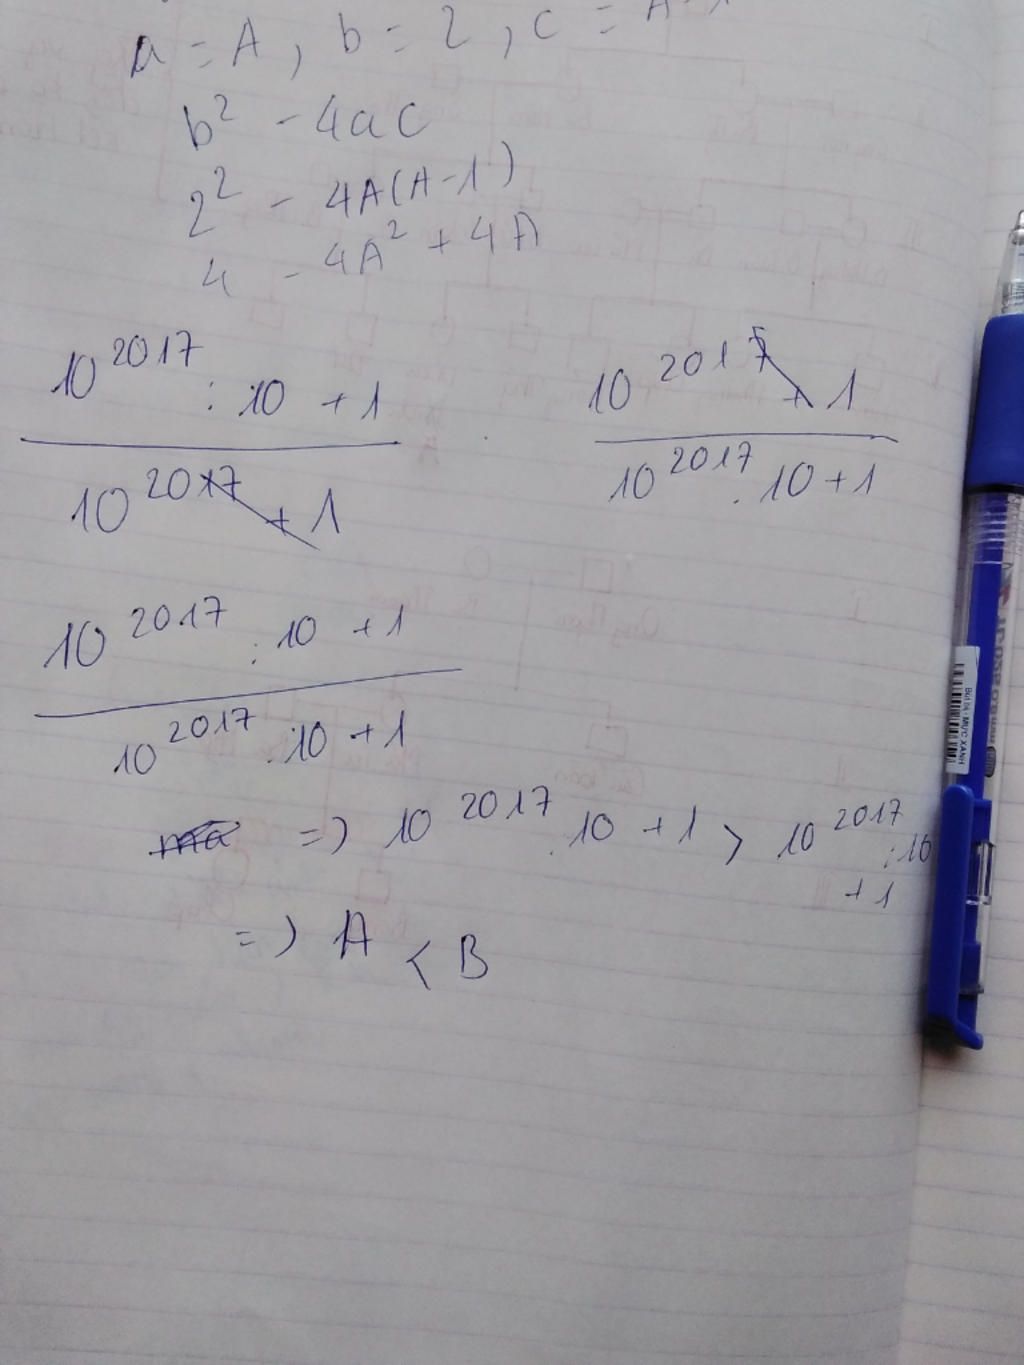 a = A, b = 2, c = A-1
b² - 4ac
2² - 4A(A-1)
4 - 4A² + 4A
10^2017 : 10 + 1
10^2017 + 1
10^2017 + 1
10^2017 . 10 + 1
10^2017 : 10 + 1
10^2017 . 10 + 1
=) 10^2017 . 10 + 1 > 10^2017 : 10
+ 1
=) A < B
BÚT BI MỰC XANH